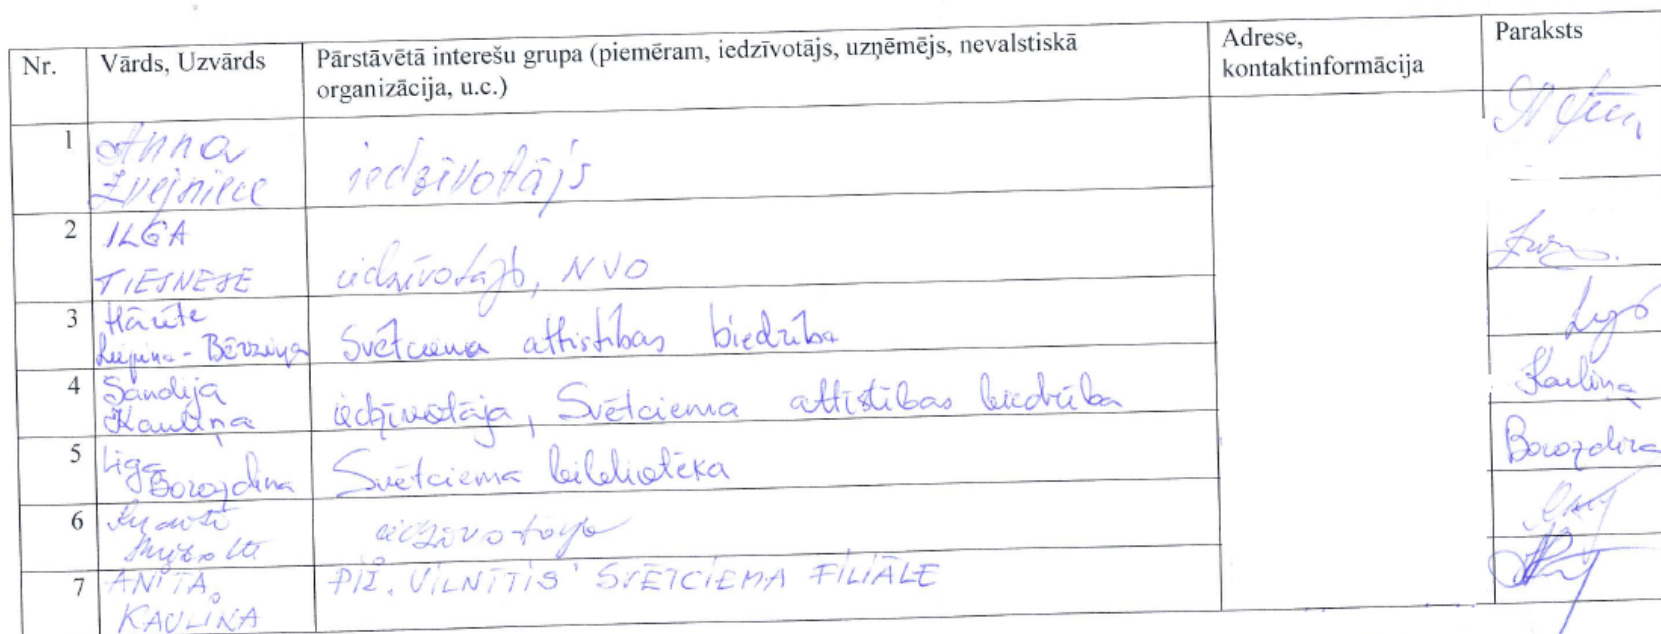 Nr.
Vārds, Uzvārds
Pārstāvētā interešu grupa (piemēram, iedzīvotājs, uzņēmējs, nevalstiskā
organizācija, u.c.)
Adrese,
kontaktinformācija
Paraksts
1
Anna
Zvejniece
iedzīvotājs
2
ILGA
TIESNESE
iedzīvotājs, NVO
3
Bērziņa
Svētciema attīstības biedrība
4
Sandija
Kauliņa
iedzīvotāja, Svētciema attīstības biedrība
Kauliņa
5
Līga
Borozdina
Svētciema bibliotēka
Borozdina
6
iedzīvotāja
7
ANITA
KAULIŅA
PII. VILNĪTIS' SVĒTCIEMA FILIĀLE